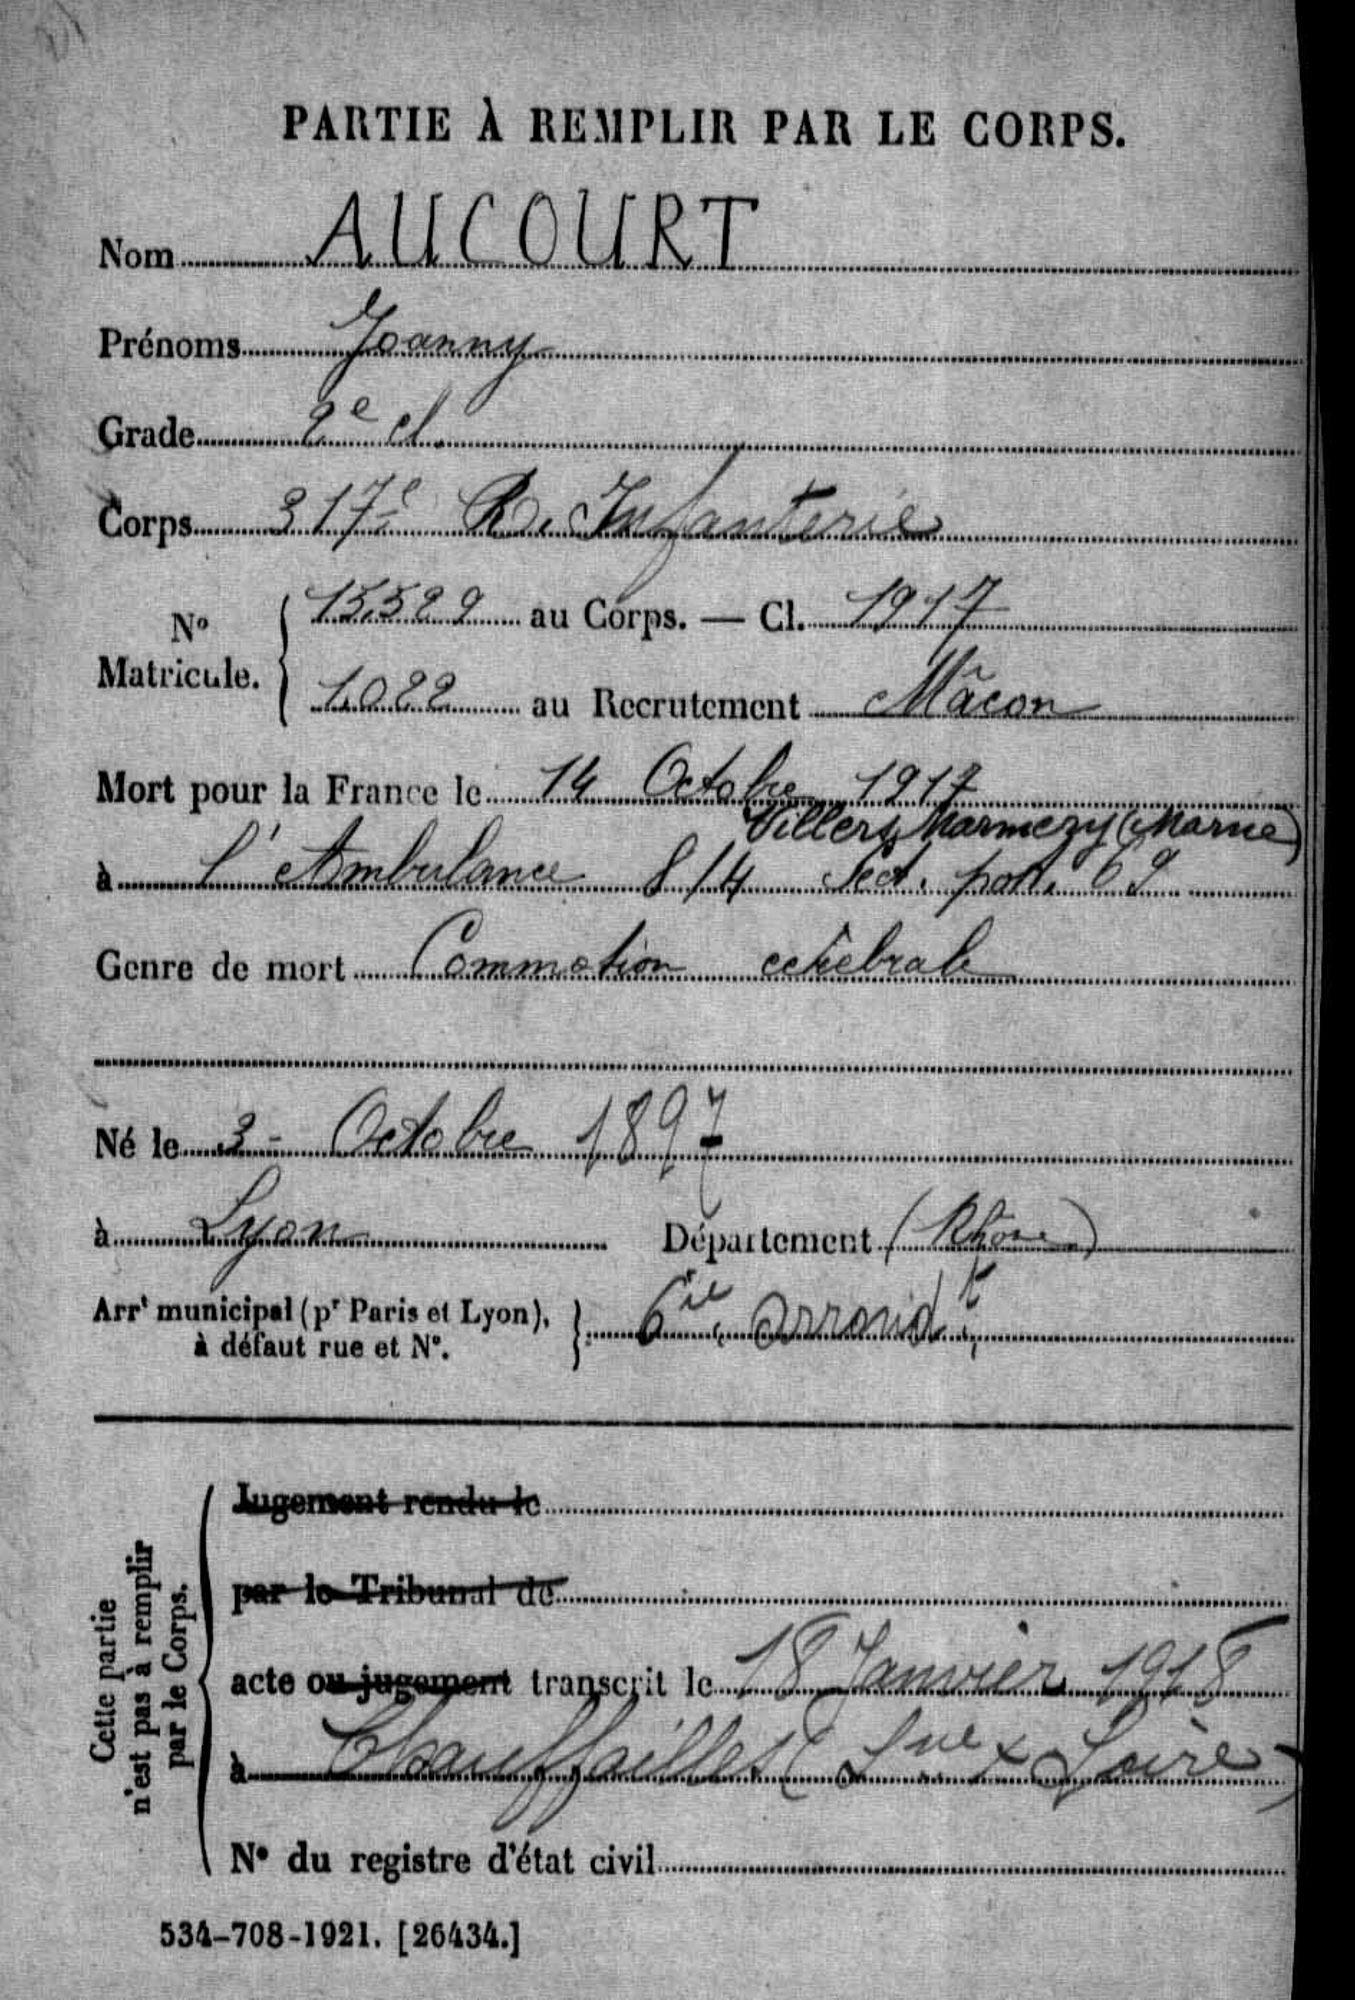 PARTIE À REMPLIR PAR LE CORPS.
Nom AUCOURT
Prénoms Joanny
Grade 2e cl.
Corps 317e R. Infanterie
No Matricule. 15.529 au Corps. — Cl. 1917
1.022 au Recrutement Mâcon
Mort pour la France le 14 Octobre 1917
Villers Marmezy (Marne)
à l'Ambulance 8/4 Sect. post. 69
Genre de mort Commotion cérébrale
Né le 3 - Octobre 1897
à Lyon Département (Rhône)
Arrt municipal (pr Paris et Lyon), 6ie arrondt
à défaut rue et No.
Cette partie
n'est pas à remplir
par le Corps.
Jugement rendu le
par le Tribunal de
acte ou jugement transcrit le 18 Janvier 1918
à Chauffailles (Sne & Loire)
No du registre d'état civil
534-708-1921. [26434.]